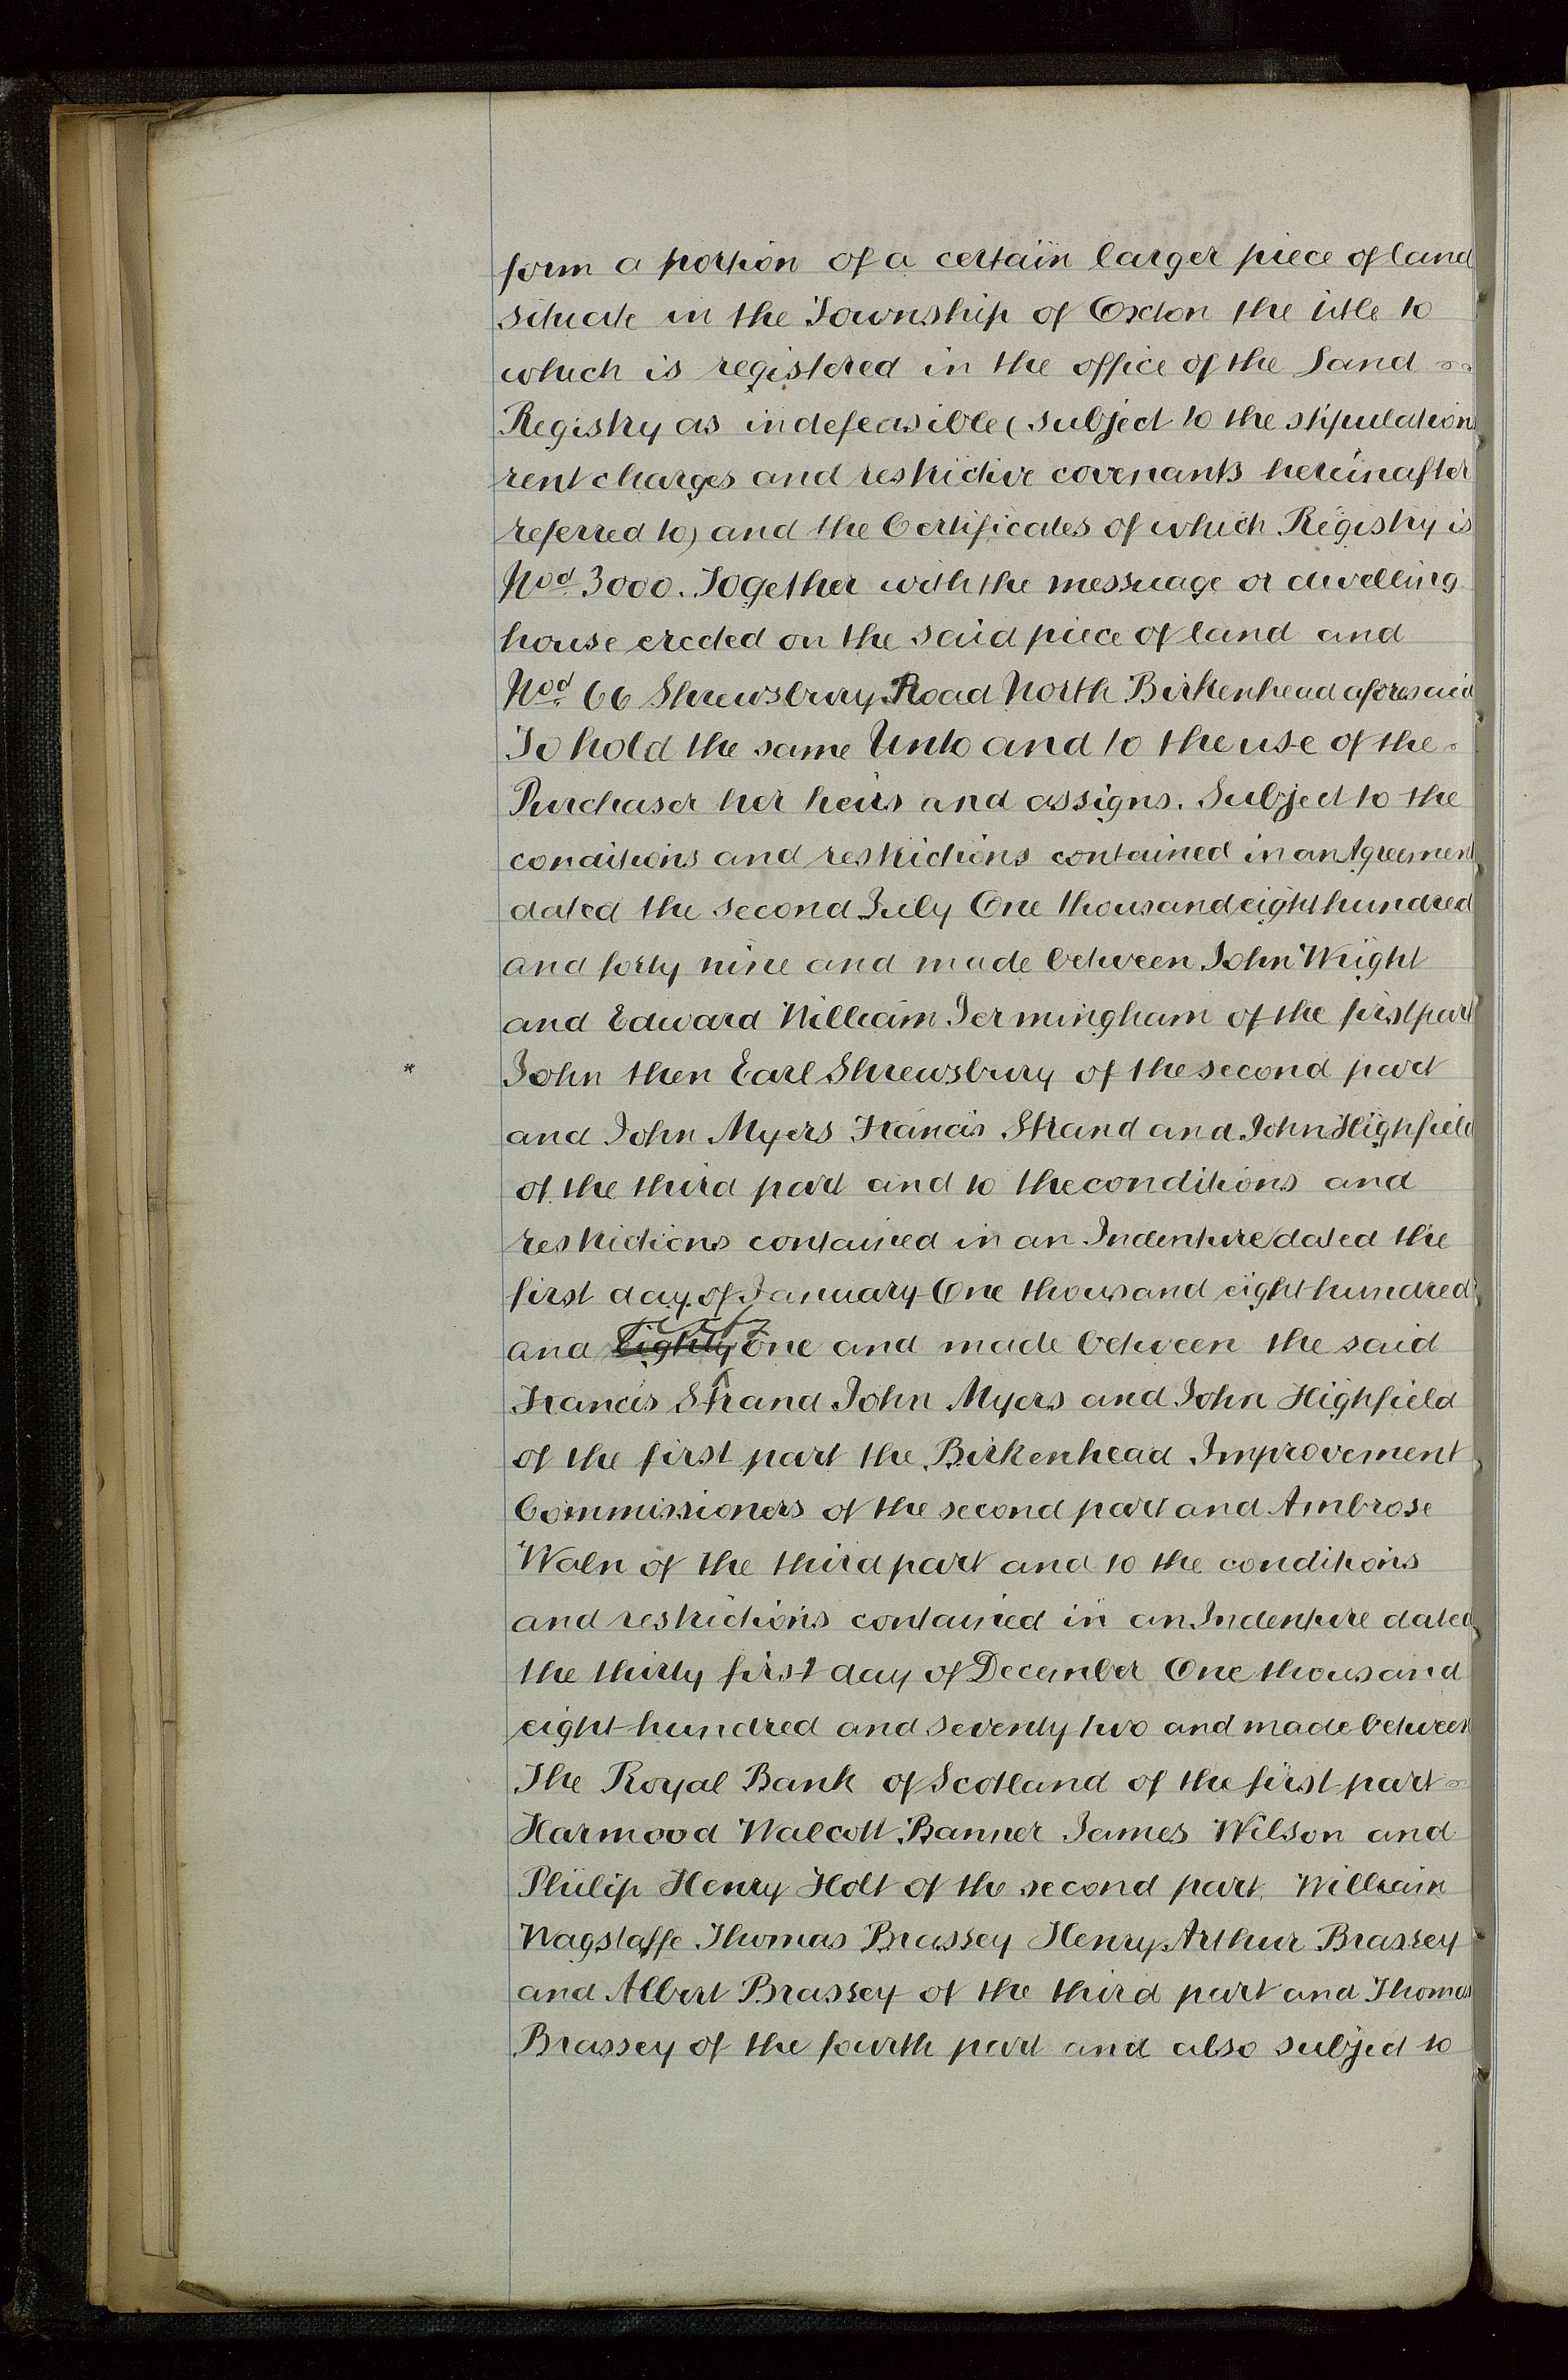 form a portion of a certain larger piece of land
situate in the Township of Oxton the title to
which is registered in the office of the Land
Registry as indefeasible (subject to the stipulation
rent charges and restrictive covenants hereinafter
referred to) and the Certificates of which Registry is
Nod 3000. Together with the messuage or dwelling
house erected on the said piece of land and
Nod 66 Shrewsbury Road North Birkenhead aforesaid
To hold the same Unto and to the use of the
Purchaser her heirs and assigns. Subject to the
conditions and restrictions contained in an Agreement
dated the second July One thousand eight hundred
and forty nine and made between John Wright
and Edward William Jermingham of the first part
* John then Earl Shrewsbury of the second part
and John Myers Francis Shand and John Highfield
of the third part and to the conditions and
restrictions contained in an Indenture dated the
first day of January One thousand eight hundred
and Eighty one and made between the said
Francis Shand John Myers and John Highfield
of the first part the Birkenhead Improvement
Commissioners of the second part and Ambrose
Waln of the third part and to the conditions
and restrictions contained in an Indenture dated
the thirty first day of December One thousand
eight hundred and seventy two and made between
The Royal Bank of Scotland of the first part
Harmood Walcott Banner James Wilson and
Philip Henry Holt of the second part. William
Wagstaffe Thomas Brassey Henry Arthur Brassey
and Albert Brassey of the third part and Thomas
Brassey of the fourth part and also subject to